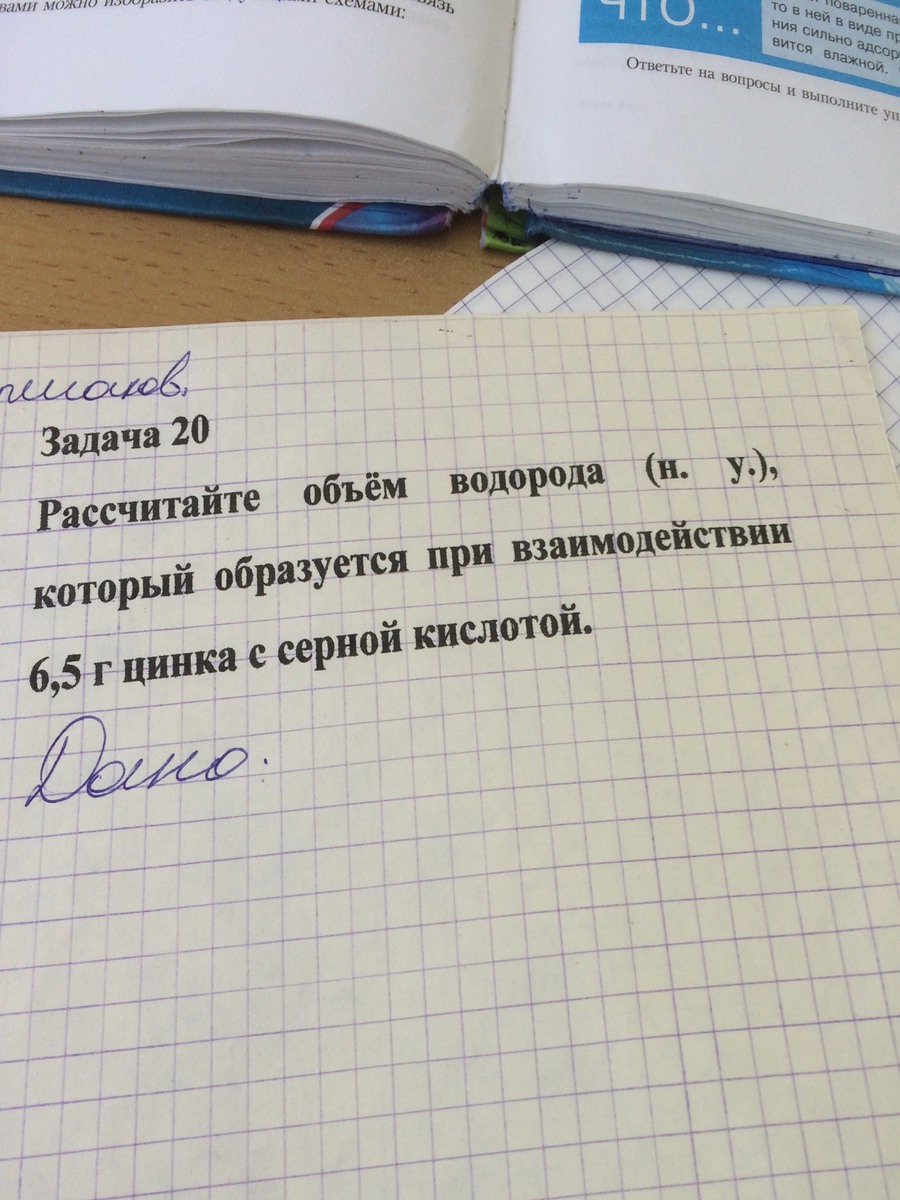 можно
схемами:
ЧТО...
то в ней в виде
ния сильно
вится влажной.
Ответьте на вопросы и выполните
Задача 20
Рассчитайте объём водорода (н. у.),
который образуется при взаимодействии
6,5 г цинка с серной кислотой.
Дано: